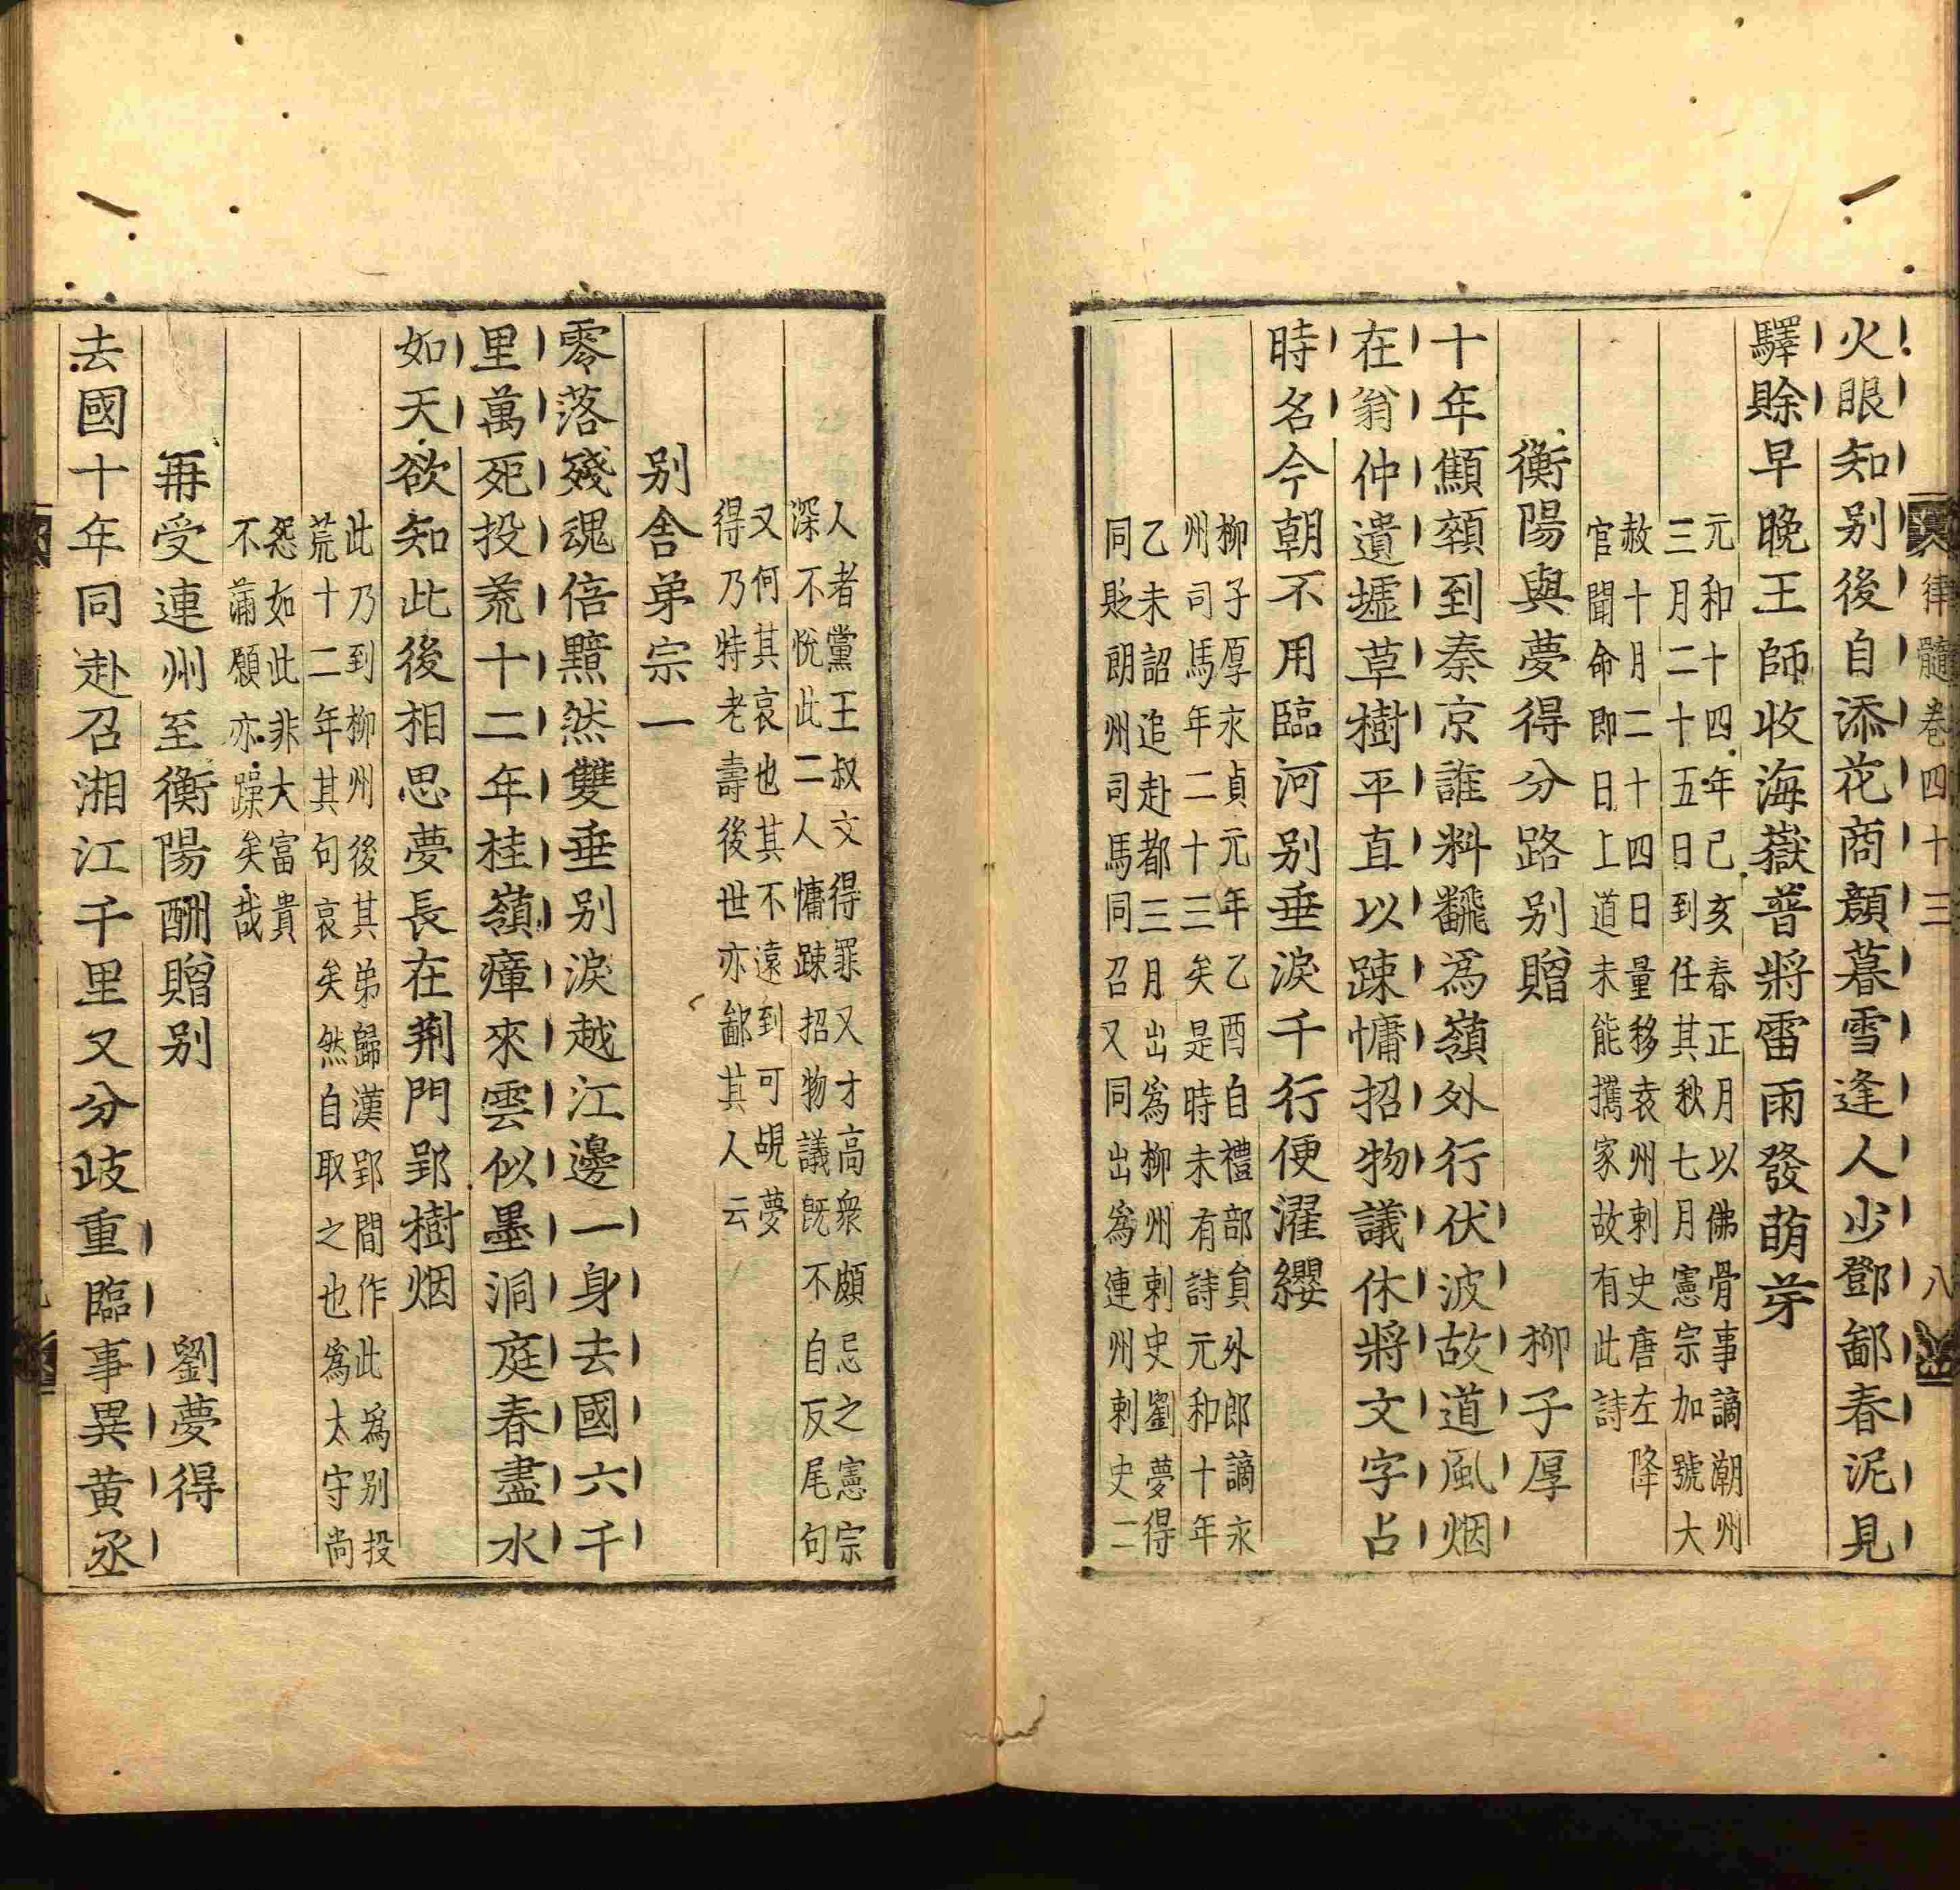 律髓卷四十三
八
火眼知别後自添花商顔暮雪逢人少鄧鄙春泥見
驛賖早晚王師收海嶽普將雷雨發萌芽
元和十四年己亥春正月以佛骨事謫潮州
三月二十五日到任其秋七月憲宗加號大
赦十月二十四日量移袁州刺史唐左降
官聞命即日上道未能攜家故有此詩
衡陽與夢得分路别贈　柳子厚
十年顦顇到秦京誰料飜爲嶺外行伏波故道風烟
在翁仲遺墟草樹平直以踈慵招物議休將文字占
時名今朝不用臨河别垂淚千行便濯纓
柳子厚永貞元年乙酉自禮部貟外郎謫永
州司馬年二十三矣是時未有詩元和十年
乙未詔追赴都三月出爲柳州刺史劉夢得
同貶朗州司馬同召又同出爲連州刺史二
人者黨王叔文得罪又才高衆頗忌之憲宗
深不悅此二人慵踈招物議旣不自反尾句
又何其哀也其不遠到可覘夢
得乃特老壽後世亦鄙其人云
别舍弟宗一
零落殘魂倍黯然雙垂别淚越江邊一身去國六千
里萬死投荒十二年桂嶺瘴來雲似墨洞庭春盡水
如天欲知此後相思夢長在荆門郢樹烟
此乃到柳州後其弟歸漢郢間作此爲别投
荒十二年其句哀矣然自取之也爲太守尚
怨如此非大富貴
不滿願亦躁矣哉
再受連州至衡陽酬贈别　劉夢得
去國十年同赴召湘江千里又分歧重臨事異黄丞